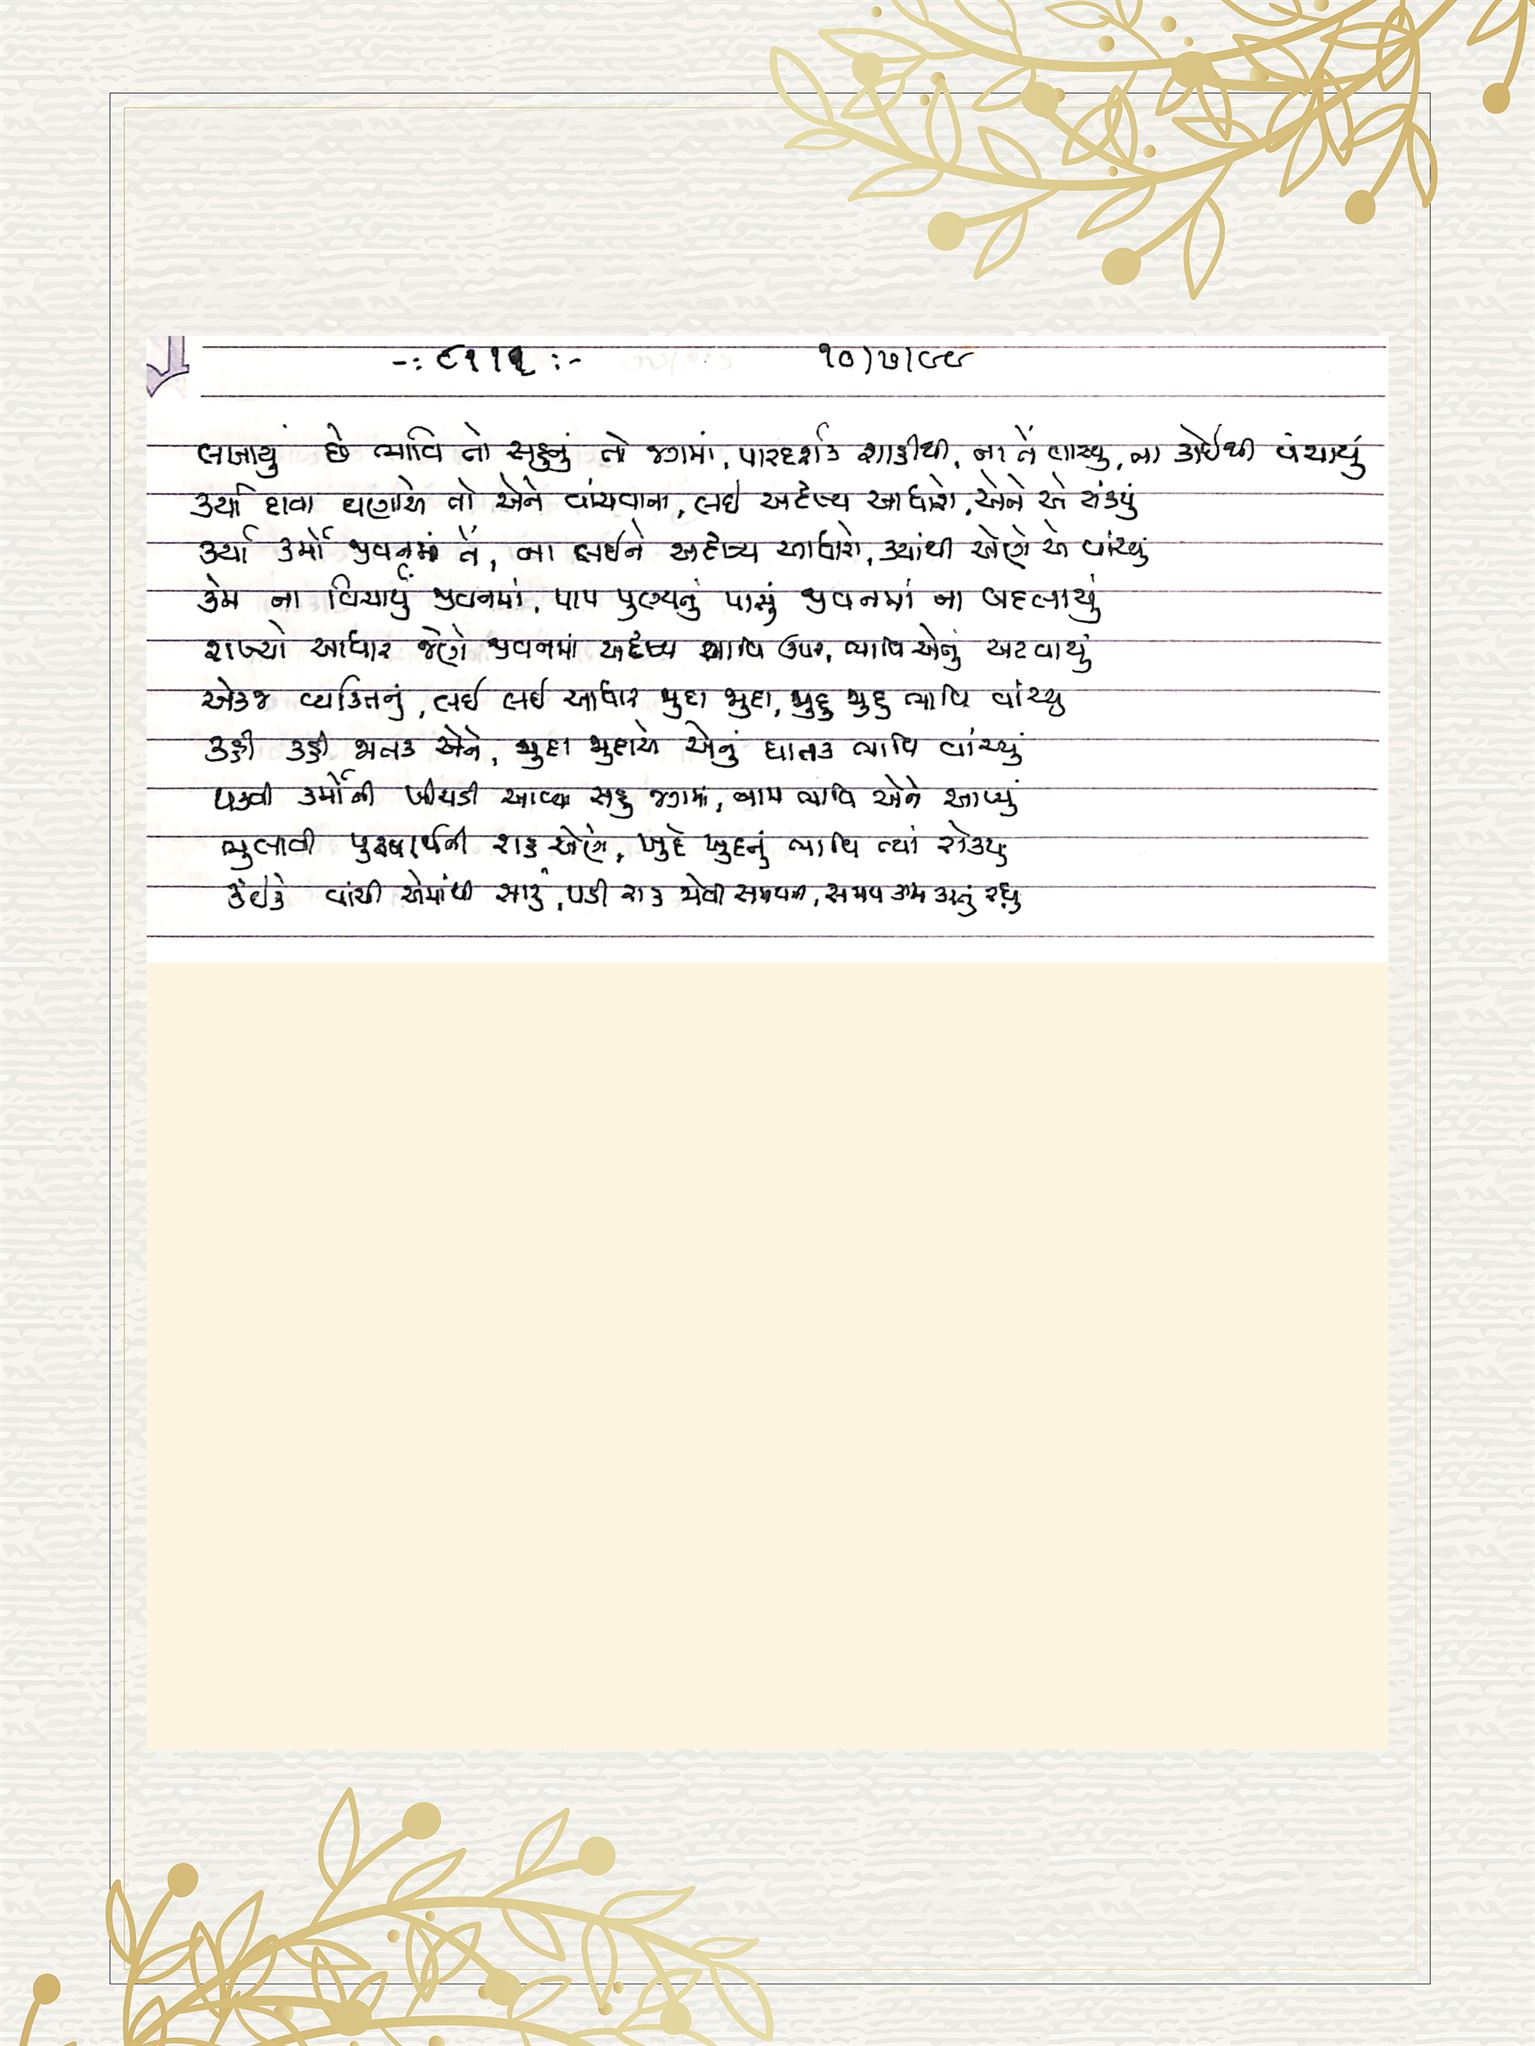 -: ૯૧૧૧ :- ૧૦/૭/૯૯
લખાયું છે ભાવિ તો સહુનું તો જગમાં, પારદર્શક શાહીથી, ના તેં વાંચ્યું, ના કોઈથી વંચાયું
કર્યા દાવા ઘણાએ તો એને વાંચવાના, લઇ અદૃશ્ય આધારો, એને એ
કર્યા કર્મો જીવનમાં તેં, ના લઈને અદૃશ્ય આધારો, ક્યાંથી એણે એ વાંચ્યું
કેમ ના વિચાર્યું જીવનમાં, પાપ પુણ્યનું પાસું જીવનમાં ના બદલાયું
રાખ્યો આધાર જેણે જીવનમાં અદૃશ્ય ભાવિ ઉપર, ભાવિ એનું અટવાયું
એકજ વ્યક્તિનું, લઈ લઈ આધાર જુદા જુદા, જુદુ જુદુ ભાવિ વાંચ્યુ
કહી કહી જાતક એને, જુદા જુદાએ એનું ઘાતક ભાવિ વાંચ્યું
પકવી કર્મોની ખીચડી આવ્યા સહુ જગમાં, નામ ભાવિ એને આપ્યું
ભુલાવી પુરુષાર્થની રાહ એણે, ખુદે ખુદનું ભાવિ ત્યાં રોક્યુ
કંઈકે વાંચી એમાંથી સારું, પડી રાહ જોવી સમયની, સમય કામ કરતું રહ્યુ